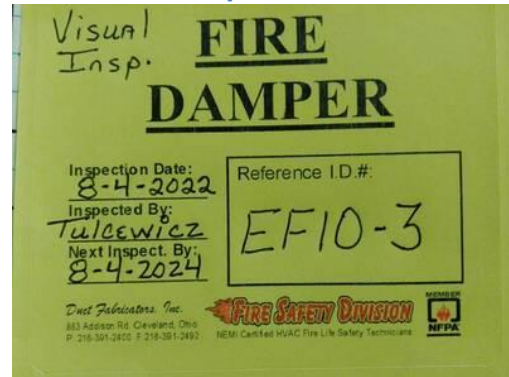 Visual
Insp.
FIRE
DAMPER
Inspection Date:
8-4-2022
Inspected By:
Tulcewicz
Next Inspect. By:
8-4-2024
Reference I.D.#:
EF10-3
Duct Fabricators, Inc.
883 Addison Rd. Cleveland, Ohio
P. 216-391-2400 F 216-391-2492
FIRE SAFETY DIVISION
NEMI Certified HVAC Fire Life Safety Technicians
MEMBER
NFPA